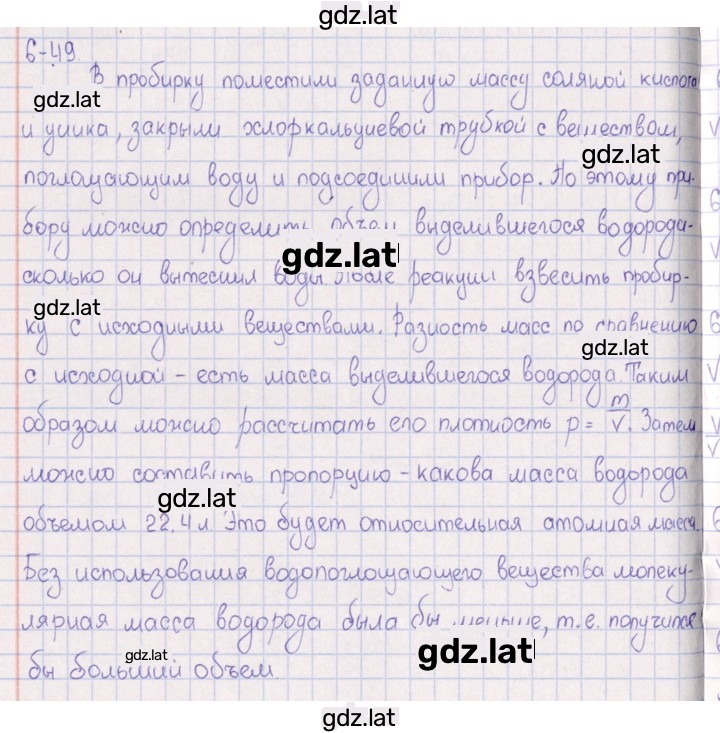 gdz.lat
6-49.
В пробирку поместили заданную массу соляной кислота
gdz.lat
и цинка, закрыли хлоркальциевой трубкой с веществом,
gdz.lat
поглощающим воду и подсоединили прибор. По этому при-
бору можно определить объем выделившегося водорода-
gdz.lat
сколько он вытеснил воды После реакции взвесить пробир-
gdz.lat
ку с исходными веществами. Разность масс по сравнению
gdz.lat
с исходной - есть масса выделившегося водорода. Таким
образом можно рассчитать его плотность ρ = m/V. Затем
можно составить пропорцию - какова масса водорода
gdz.lat
объемом 22,4 л. Это будет относительная атомная масса.
Без использования водопоглощающего вещества молеку-
лярная масса водорода была бы меньше, т.е. получился
gdz.lat
gdz.lat
бы больший объем.
gdz.lat